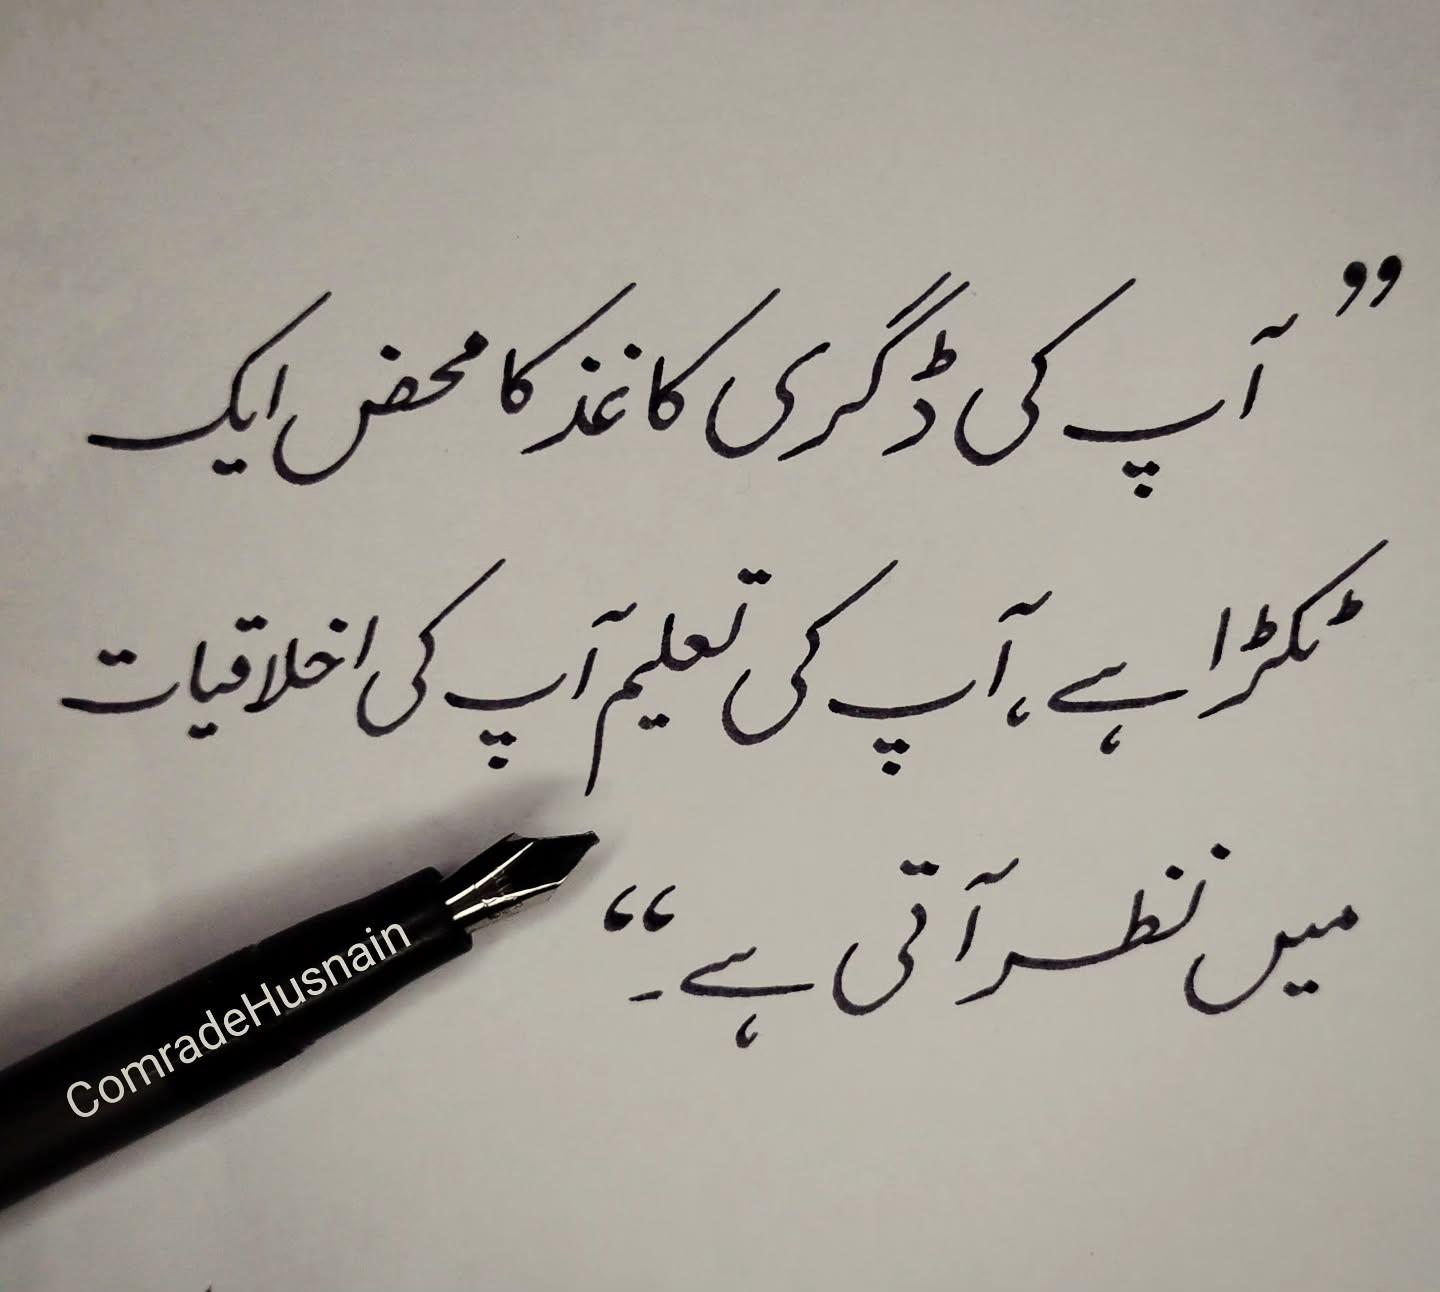 ”آپ کی ڈگری کاغذ کا محض ایک
ٹکڑا ہے، آپ کی تعلیم آپ کی اخلاقیات
میں نظر آتی ہے۔“
ComradeHusnain